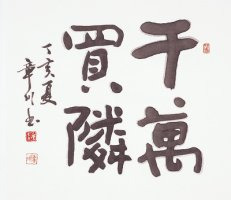 千萬
買隣
丁亥夏
章